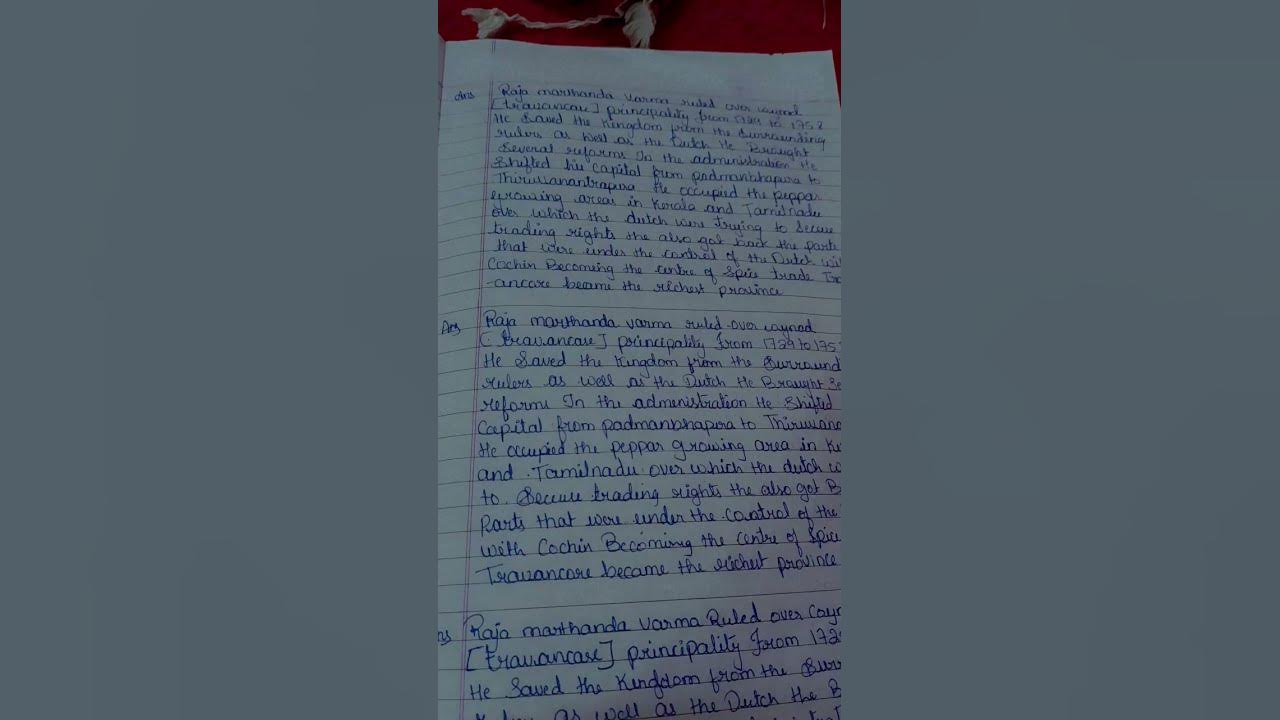 Ans
Raja marthanda varma ruled over waynad
[travancare] principality from 1729 to 1758
He Saved the Kingdom from the Surrounding
rulers as well as the Dutch He Braught
Several reforms In the administration He
Shifted his capital from padmanbhapura to
Thiruvanantrapura He occupied the peppar
growing areas in Kerala and Tamilnadu
over which the dutch were trying to Secure
trading rights the also got back the parts
that were under the control of the Dutch wi
Cochin Becoming the centre of Spice trade Tra
-ancore became the richest province
Ans
Raja marthanda varma ruled over waynad
[travancare] principality from 1729 to 175
He Saved the Kingdom from the Surround
rulers as well as the Dutch He Braught Se
reforms In the administration He Shifted
Capital from padmanbhapura to Thiruvana
He occupied the peppar growing area in Ke
and Tamilnadu over which the dutch w
to Secure trading rights the also got B
Parts that were under the control of the
with Cochin Becoming the centre of Spice
Travancore became the richest province
ns
Raja marthanda varma Ruled over
[travancare] principality from 172
He Saved the Kingdom from the Surr
as well as the Dutch the B